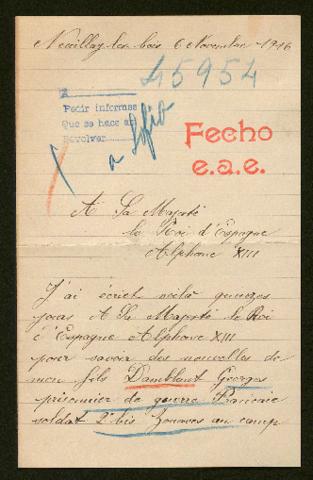 Neuillay les bois 6 Novembre 1916
45954
Pedir informes
Que se hace al
devolver
a Sofia
Fecho
e.a.e.
A Sa Majesté
le Roi d'Espagne
Alphonse XIII
J'ai écriet voilà quinzes
jours A Sa Majesté le Roi
d'Espagne Alphonse XIII
pour savoir des nouvelles de
mon fils Damblant Georges
prisonnier de guerre Francaie
soldat 2e bis Zouaves au camp